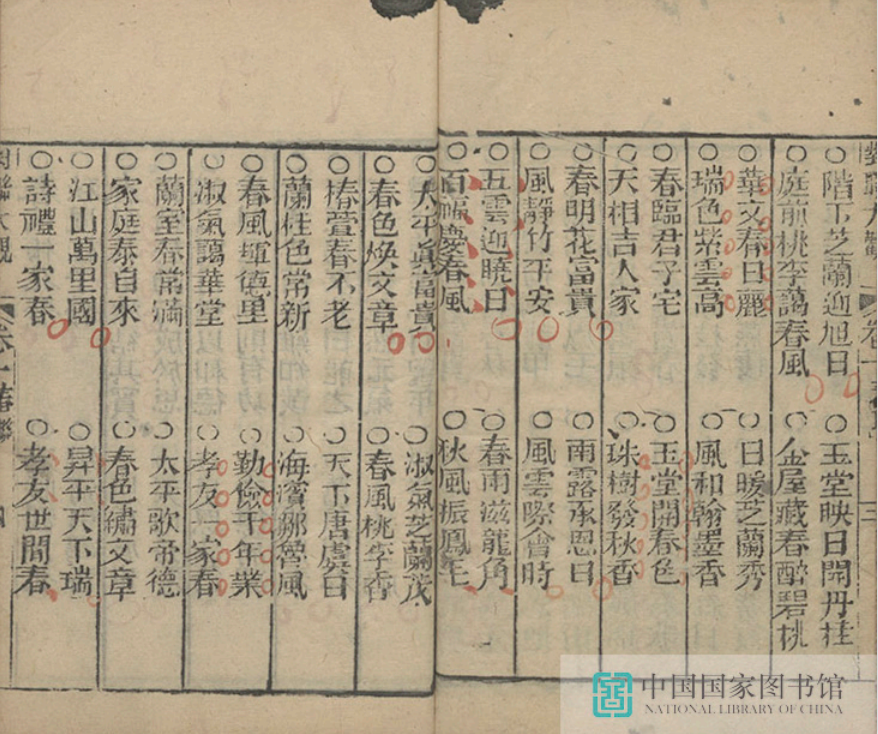 ○階下芝蘭迎旭日
○玉堂映日開丹桂
○庭前桃李藹春風
○金屋藏春醉碧桃
○華文春日麗
○日暖芝蘭秀
○瑞色紫雲高
○風和翰墨香
○春臨君子宅
○玉堂開春色
○天相吉人家
○珠樹發秋香
○春明花富貴
○雨露承恩日
○風靜竹平安
○風雲際會時
○五雲迎曉日
○春雨滋龍角
○百福慶春風
○秋風振鳳毛
○太平眞富貴
○淑氣芝蘭茂
○春色煥文章
○春風桃李香
○椿萱春不老
○天下唐虞日
○蘭桂色常新
○海濱鄒魯風
○春風揮德里
○勤儉千年業
○淑氣藹華堂
○孝友一家春
○蘭室春常滿
○太平歌帝德
○家庭泰自來
○春色繡文章
○江山萬里國
○昇平天下瑞
○詩禮一家春
○孝友世間春
對聯大觀 卷一春聯 四
中国国家图书馆
NATIONAL LIBRARY OF CHINA